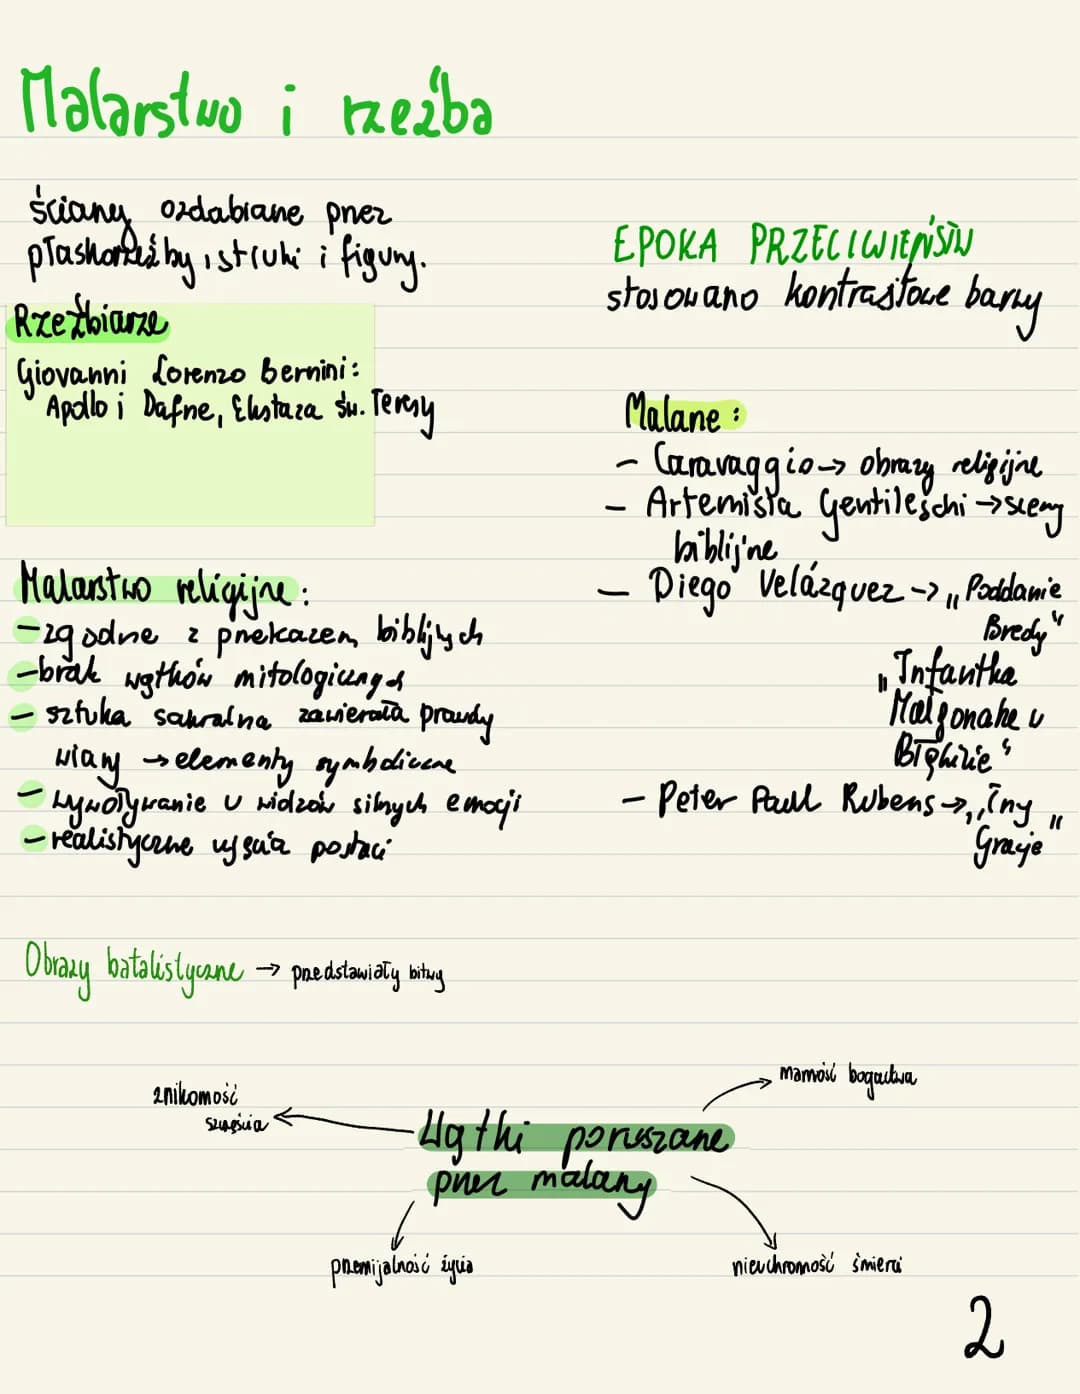 Malarstwo i rzeźba
ściany ozdabiane przez
płaskorzeźby, stiuki i figury.
Rzeźbiarze
Giovanni Lorenzo Bernini:
Apollo i Dafne, Ekstaza św. Teresy
EPOKA PRZECIWIEŃSTW
stosowano kontrastowe barwy
Malarze:
- Caravaggio → obrazy religijne
- Artemisia Gentileschi → sceny
biblijne
- Diego Velázquez → „Poddanie
Bredy"
„Infantka
Małgorzata w
Błękicie"
- Peter Paul Rubens → „Trzy
Gracje"
Malarstwo religijne:
- zgodne z przekazem biblijnych
- brak wątków mitologicznych
- sztuka sakralna zawierała prawdy
wiary → elementy symboliczne
- wywoływanie u widzów silnych emocji
- realistyczne ujęcia postaci
Obrazy batalistyczne → przedstawiały bitwy
Wątki poruszane
przez malarzy
znikomość
szczęścia
marność bogactwa
przemijalność życia
nieuchronność śmierci
2